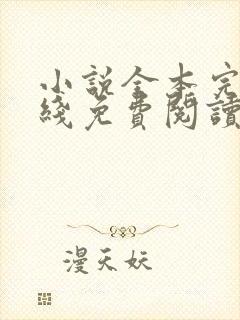 小說全本完
綫免費閱讀
漫天妖